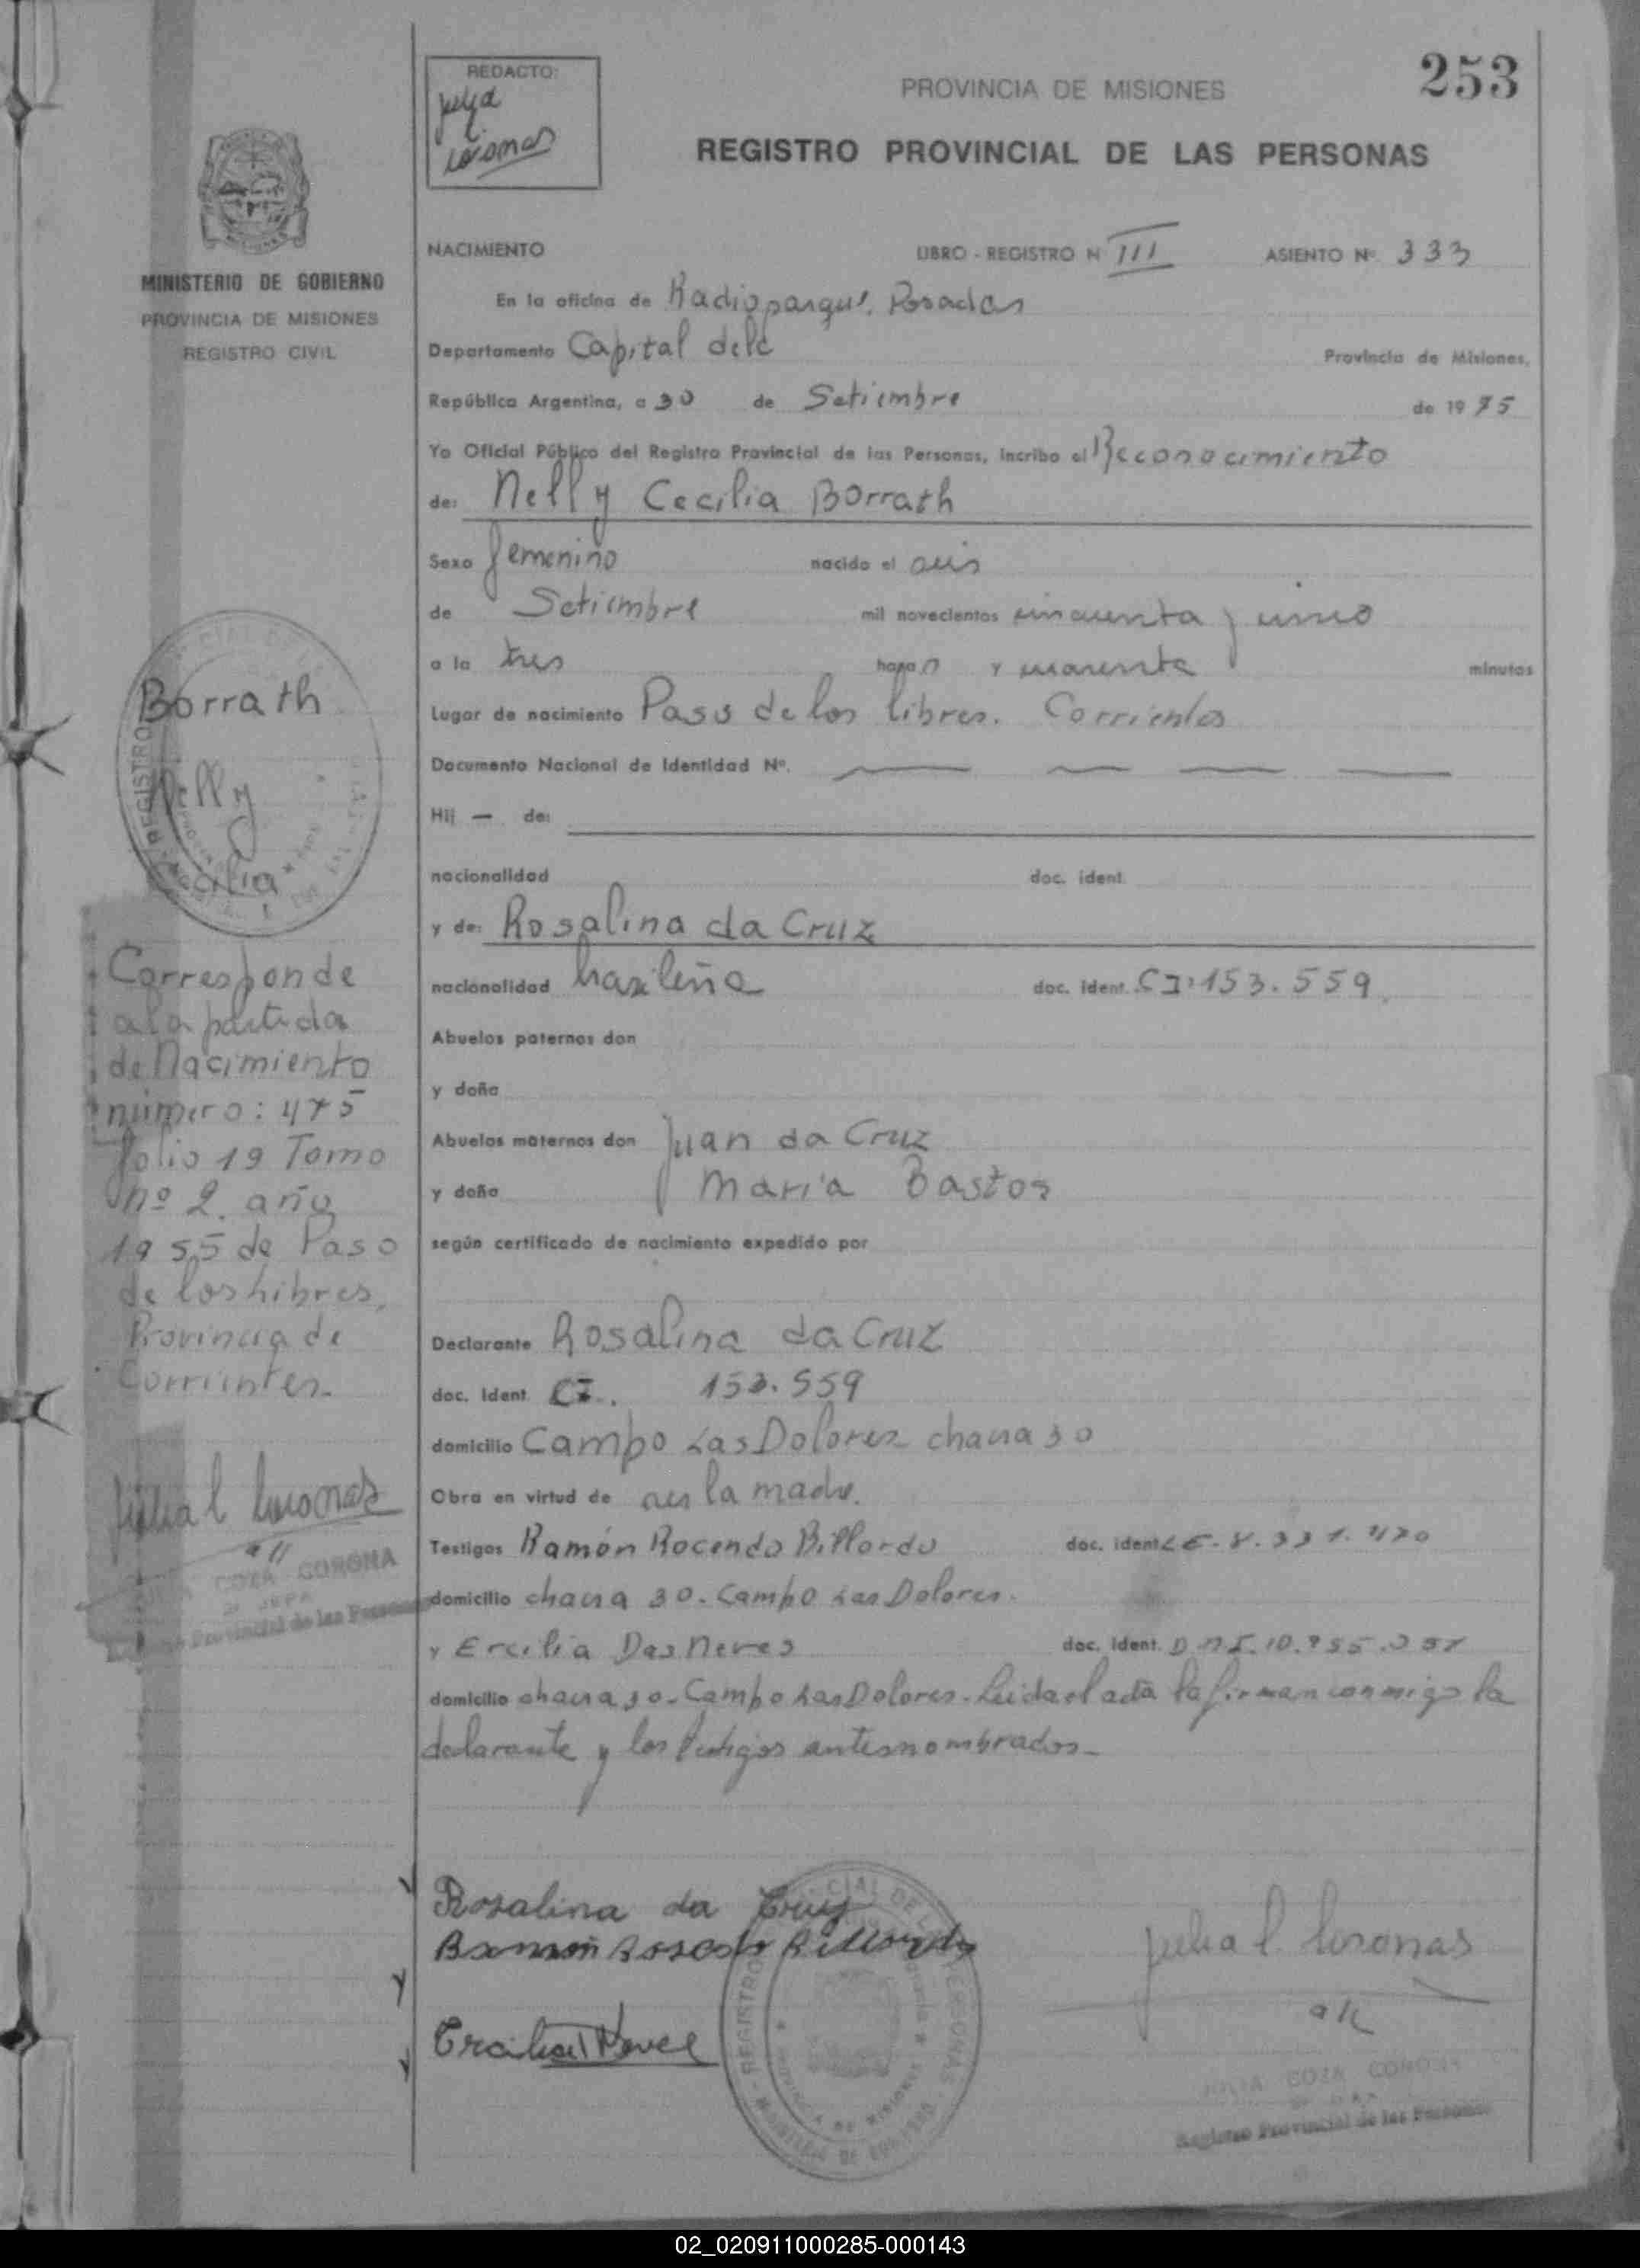 253
REDACTO:
PROVINCIA DE MISIONES
REGISTRO PROVINCIAL DE LAS PERSONAS
MINISTERIO DE GOBIERNO
PROVINCIA DE MISIONES
REGISTRO CIVIL
NACIMIENTO LIBRO - REGISTRO N III ASIENTO Nº 333
En la oficina de Radioparque, Posadas
Departamento Capital de la Provincia de Misiones,
República Argentina, a 30 de Setiembre de 1975
Yo Oficial Público del Registro Provincial de las Personas, incribo el Reconocimiento
de: Nelly Cecilia Borrath
Sexo femenino nacido el seis
de Setiembre mil novecientos cincuenta y cinco
a la tres horas y cuarenta minutos
Lugar de nacimiento Paso de los libres. Corrientes
Documento Nacional de Identidad Nº.
Hij — de:
nacionalidad doc. ident.
y de: Rosalina da Cruz
nacionalidad brasileña doc. ident. CI: 153.559
Abuelos paternos don
y doña
Abuelos maternos don Juan da Cruz
y doña Maria Bastos
según certificado de nacimiento expedido por
Declarante Rosalina da Cruz
doc. ident. CI. 153.559
domicilio Campo Las Dolores chacra 30
Obra en virtud de ser la madre.
Testigos Ramón Rocendo Billordo doc. ident. LE-
domicilio chacra 30. Campo Las Dolores.
y Ercilia Das Neves doc. ident. DNI.
domicilio chacra 30. Campo Las Dolores. Leida el acta la firman conmigo la
declarante y los testigos antesnombrados-
Borrath
Nelly
Cecilia
Corresponde
a la partida
de Nacimiento
número: 475
folio 19 Tomo
nº 2. año
1955 de Paso
de los Libres,
Provincia de
Corrientes.
Julia C Coronas
COZA CORONA
Provincial de las Personas
Rosalina da Cruz
Ramón Rosendo Billordo
Julia C. Coronas
JULIA COZA CORONA
Registro Provincial de las Personas
02_020911000285-000143